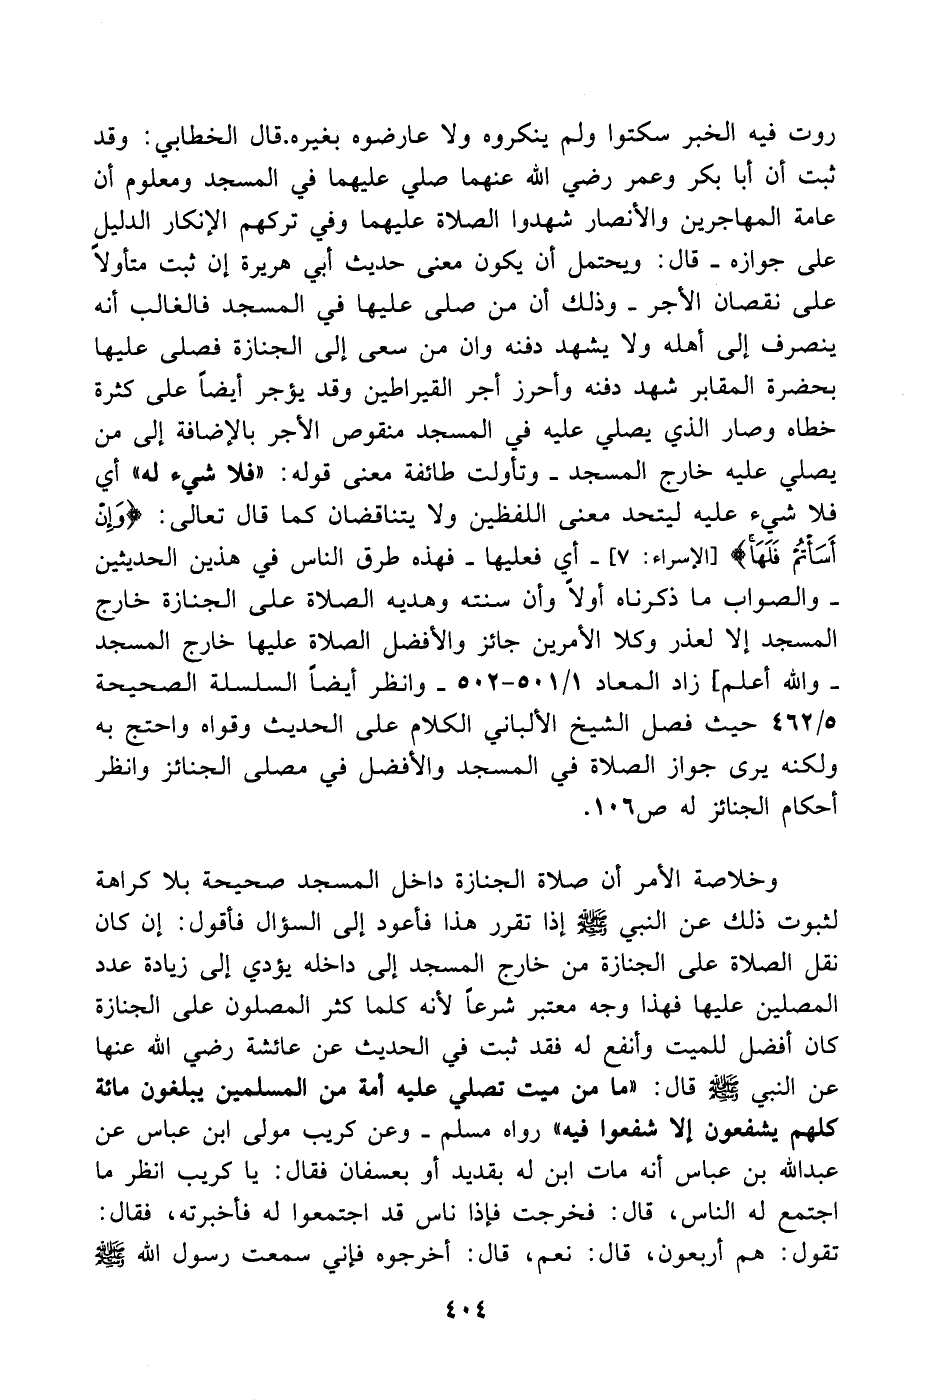 روت فيه الخبر سكتوا ولم ينكروه ولا عارضوه بغيره.قال الخطابي: وقد
ثبت أن أبا بكر وعمر رضي الله عنهما صلي عليهما في المسجد ومعلوم أن
عامة المهاجرين والأنصار شهدوا الصلاة عليهما وفي تركهم الإنكار الدليل
على جوازه ـ قال: ويحتمل أن يكون معنى حديث أبي هريرة إن ثبت متأولاً
على نقصان الأجر ـ وذلك أن من صلى عليها في المسجد فالغالب أنه
ينصرف إلى أهله ولا يشهد دفنه وان من سعى إلى الجنازة فصلى عليها
بحضرة المقابر شهد دفنه وأحرز أجر القيراطين وقد يؤجر أيضاً على كثرة
خطاه وصار الذي يصلي عليه في المسجد منقوص الأجر بالإضافة إلى من
يصلي عليه خارج المسجد ـ وتأولت طائفة معنى قوله: «فلا شيء له» أي
فلا شيء عليه ليتحد معنى اللفظين ولا يتناقضان كما قال تعالى: ﴿وَإِنْ
أَسَأْتُمْ فَلَهَا﴾ [الإسراء: ٧] ـ أي فعليها ـ فهذه طرق الناس في هذين الحديثين
ـ والصواب ما ذكرناه أولاً وأن سنته وهديه الصلاة على الجنازة خارج
المسجد إلا لعذر وكلا الأمرين جائز والأفضل الصلاة عليها خارج المسجد
ـ والله أعلم] زاد المعاد ٥٠١/١–٥٠٢ ـ وانظر أيضاً السلسلة الصحيحة
٤٦٢/٥ حيث فصل الشيخ الألباني الكلام على الحديث وقواه واحتج به
ولكنه يرى جواز الصلاة في المسجد والأفضل في مصلى الجنائز وانظر
أحكام الجنائز له ص١٠٦.
وخلاصة الأمر أن صلاة الجنازة داخل المسجد صحيحة بلا كراهة
لثبوت ذلك عن النبي ﷺ إذا تقرر هذا فأعود إلى السؤال فأقول: إن كان
نقل الصلاة على الجنازة من خارج المسجد إلى داخله يؤدي إلى زيادة عدد
المصلين عليها فهذا وجه معتبر شرعاً لأنه كلما كثر المصلون على الجنازة
كان أفضل للميت وأنفع له فقد ثبت في الحديث عن عائشة رضي الله عنها
عن النبي ﷺ قال: «ما من ميت تصلي عليه أمة من المسلمين يبلغون مائة
كلهم يشفعون إلا شفعوا فيه» رواه مسلم ـ وعن كريب مولى ابن عباس عن
عبدالله بن عباس أنه مات ابن له بقديد أو بعسفان فقال: يا كريب انظر ما
اجتمع له الناس، قال: فخرجت فإذا ناس قد اجتمعوا له فأخبرته، فقال:
تقول: هم أربعون، قال: نعم، قال: أخرجوه فإني سمعت رسول الله ﷺ
٤٠٤